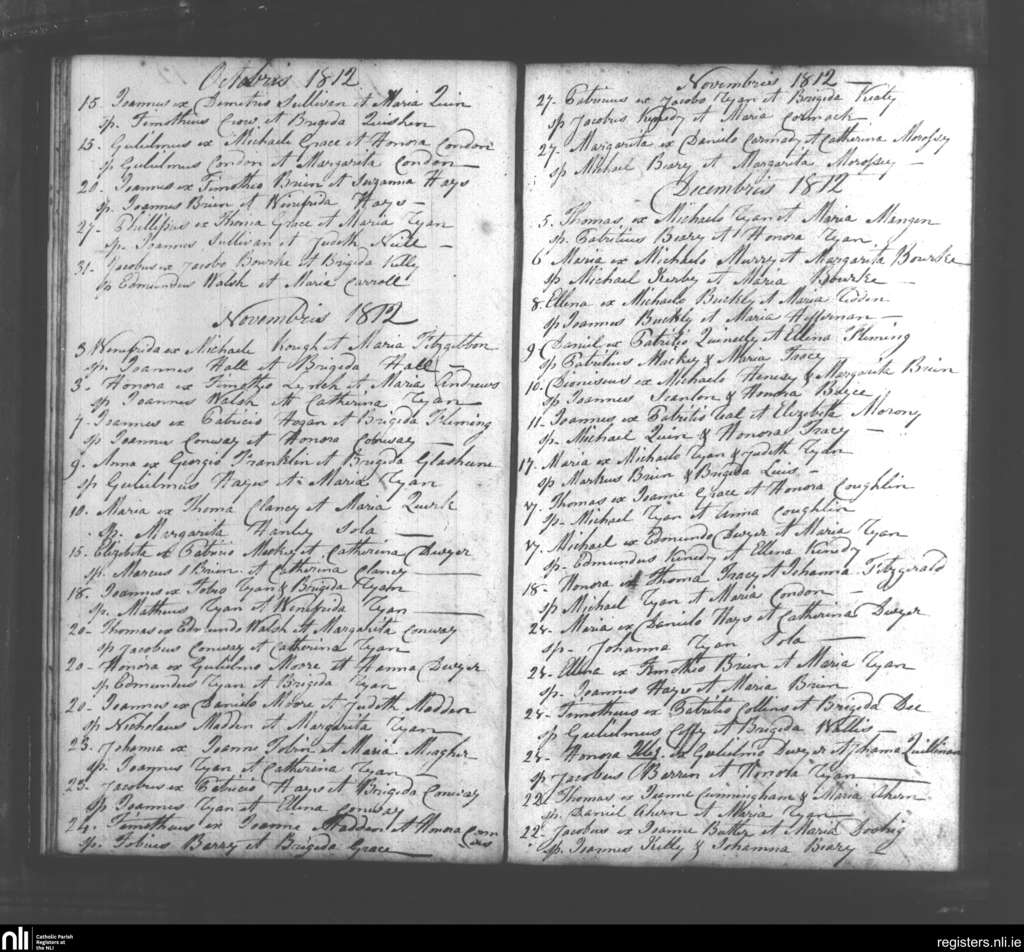 Octobris 1812
15. Joannes ex Demetrio Sullivan et Maria Quin
sp. Timotheus Crow et Brigida
15. Gulielmus ex Michaele Grace et Honora Condon
sp Gulielmus Condon et Margarita Condon
20. Joannes ex Timotheo Brien et Suzanna Hays
sp. Joannes Brien et Winefrida Hays
27. ex Thoma Grace et Maria Ryan
sp. Joannes Sullivan et Judith
31. Jacobus ex Jacobo Bourke et Brigida Kelly
sp Edmundus Walsh et Maria Carroll
Novembris 1812
3. Winefrida ex Michaele et Maria Fitzgibbon
sp. Joannes Hall et Brigida Hall
3. Honora ex Timotheo Lynch et Maria Andrews
sp Joannes Walsh et Catherina Ryan
7. Joannes ex Patricio Hogan et Brigida Fleming
sp Joannes Conway et Honora Conway
9. Anna ex Georgio Franklin et Brigida
sp Gulielmus Hayes et Maria Ryan
10. Maria ex Thoma Clancy et Maria Quirk
sp. Margarita Hanley Sola
15. Elizabeta ex Patricio Mackey et Catherina Dwyer
sp. Marcus Brien et Catherina Clancy
18. Joannes ex Tobis Ryan & Brigida Ryan
sp. Matheus Ryan et Winefrida Ryan
20. Thomas ex Edmundo Walsh et Margarita Conway
sp Jacobus Conway et Catherina Ryan
20. Honora ex Gulielmo Moore et Hanna Dwyer
sp Edmundus Ryan et Brigida Ryan
20. Joannes ex Daniele Moore et Judith Madden
sp Nicholaus Madden et Margarita Ryan
23. Johanna ex Joanne Tobin et Maria Meagher
sp. Joannes Ryan et Catherina Ryan
23. Jacobus ex Patricio Hays et Brigida Conway
sp Joannes Ryan et Ellena Conway
24. Timotheus ex Joanne Madden et Honora
sp. Tobias Barry et Brigida Grace
Novembris 1812
27. Patricius ex Jacobo Ryan et Brigida Keaty
sp Jacobus Kenedy et Maria Cormack
27. Margarita ex Daniele Carmody et Catherina
sp Michael Beary et Margarita
Decembris 1812
5. Thomas ex Michaele Ryan et Maria Mangan
sp. Patritius Beary et Honora Ryan
6 Maria ex Michaele Murry et Margarita Bourke
sp Michael Kerby et Maria Bourke
8. Ellena ex Michaele Buckly et Maria
sp Joannes Buckly et Maria Heffernan
9 Daniel ex Patritio et Ellena Fleming
sp Patritius Mackey & Maria
10. Dionisius ex Michaele Henesy & Margarita Brien
sp Joannes Scanlon & Honora
11. Joannes ex Patritio et Elizabeta Morony
sp. Michael Quin & Honora Tracy
17. Maria ex Michaele Ryan & Judith Ryan
sp Markus Brien & Brigida
17. Thomas ex Joanne Grace et Honora Coughlin
sp. Michael Ryan et Anna Coughlin
17. Michael ex Edmundo Dwyer et Maria Ryan
sp. Edmundus Kenedy et Ellena Kenedy
18. Honora ex Thoma Tracy et Johanna Fitzgerald
sp Michael Ryan et Maria Condon
Maria ex Daniele Hays et Catharina Dwyer
sp. Johanna Ryan Sola
Ellena ex Timotheo Brien et Maria Ryan
sp. Joannes Hays et Maria Brien
Timotheus ex Patritio Collins et Brigida Dee
sp Gulielmus Coffy et Brigida Wallis
Honora ex Gulielmo Dwyer et Johanna Quillinan
sp Jacobus et Honora Ryan
22 Thomas ex Joanne Cunningham & Maria Ahern
sp. Daniel Ahern et Maria Ryan
22. Jacobus ex Joanne Butler et Maria
sp. Joannes Kelly & Johanna Beary
nli
Catholic Parish
Registers at
the NLI
registers.nli.ie